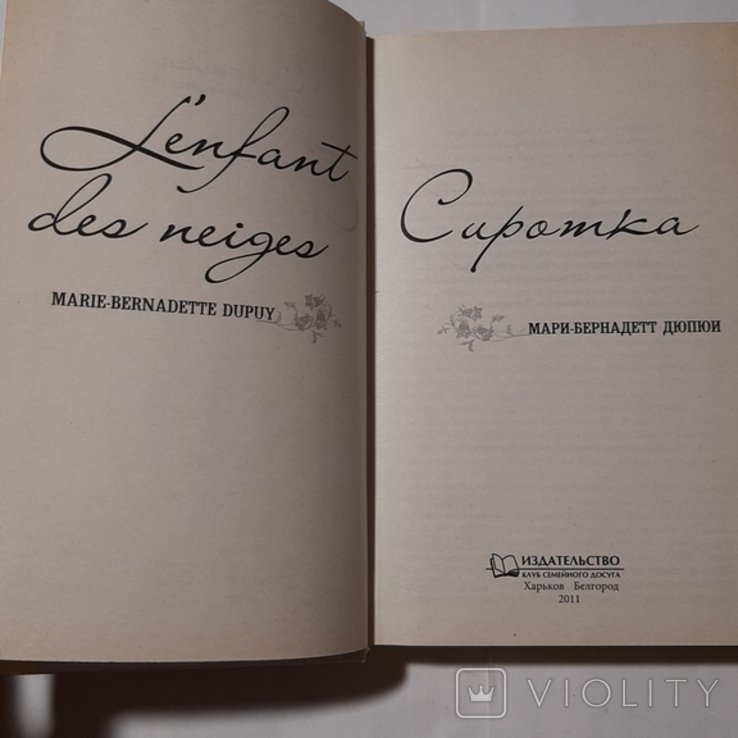 L'enfant
des neiges
MARIE-BERNADETTE DUPUY
Сиротка
МАРИ-БЕРНАДЕТТ ДЮПЮИ
ИЗДАТЕЛЬСТВО
КЛУБ СЕМЕЙНОГО ДОСУГА
Харьков Белгород
2011
VIOLITY